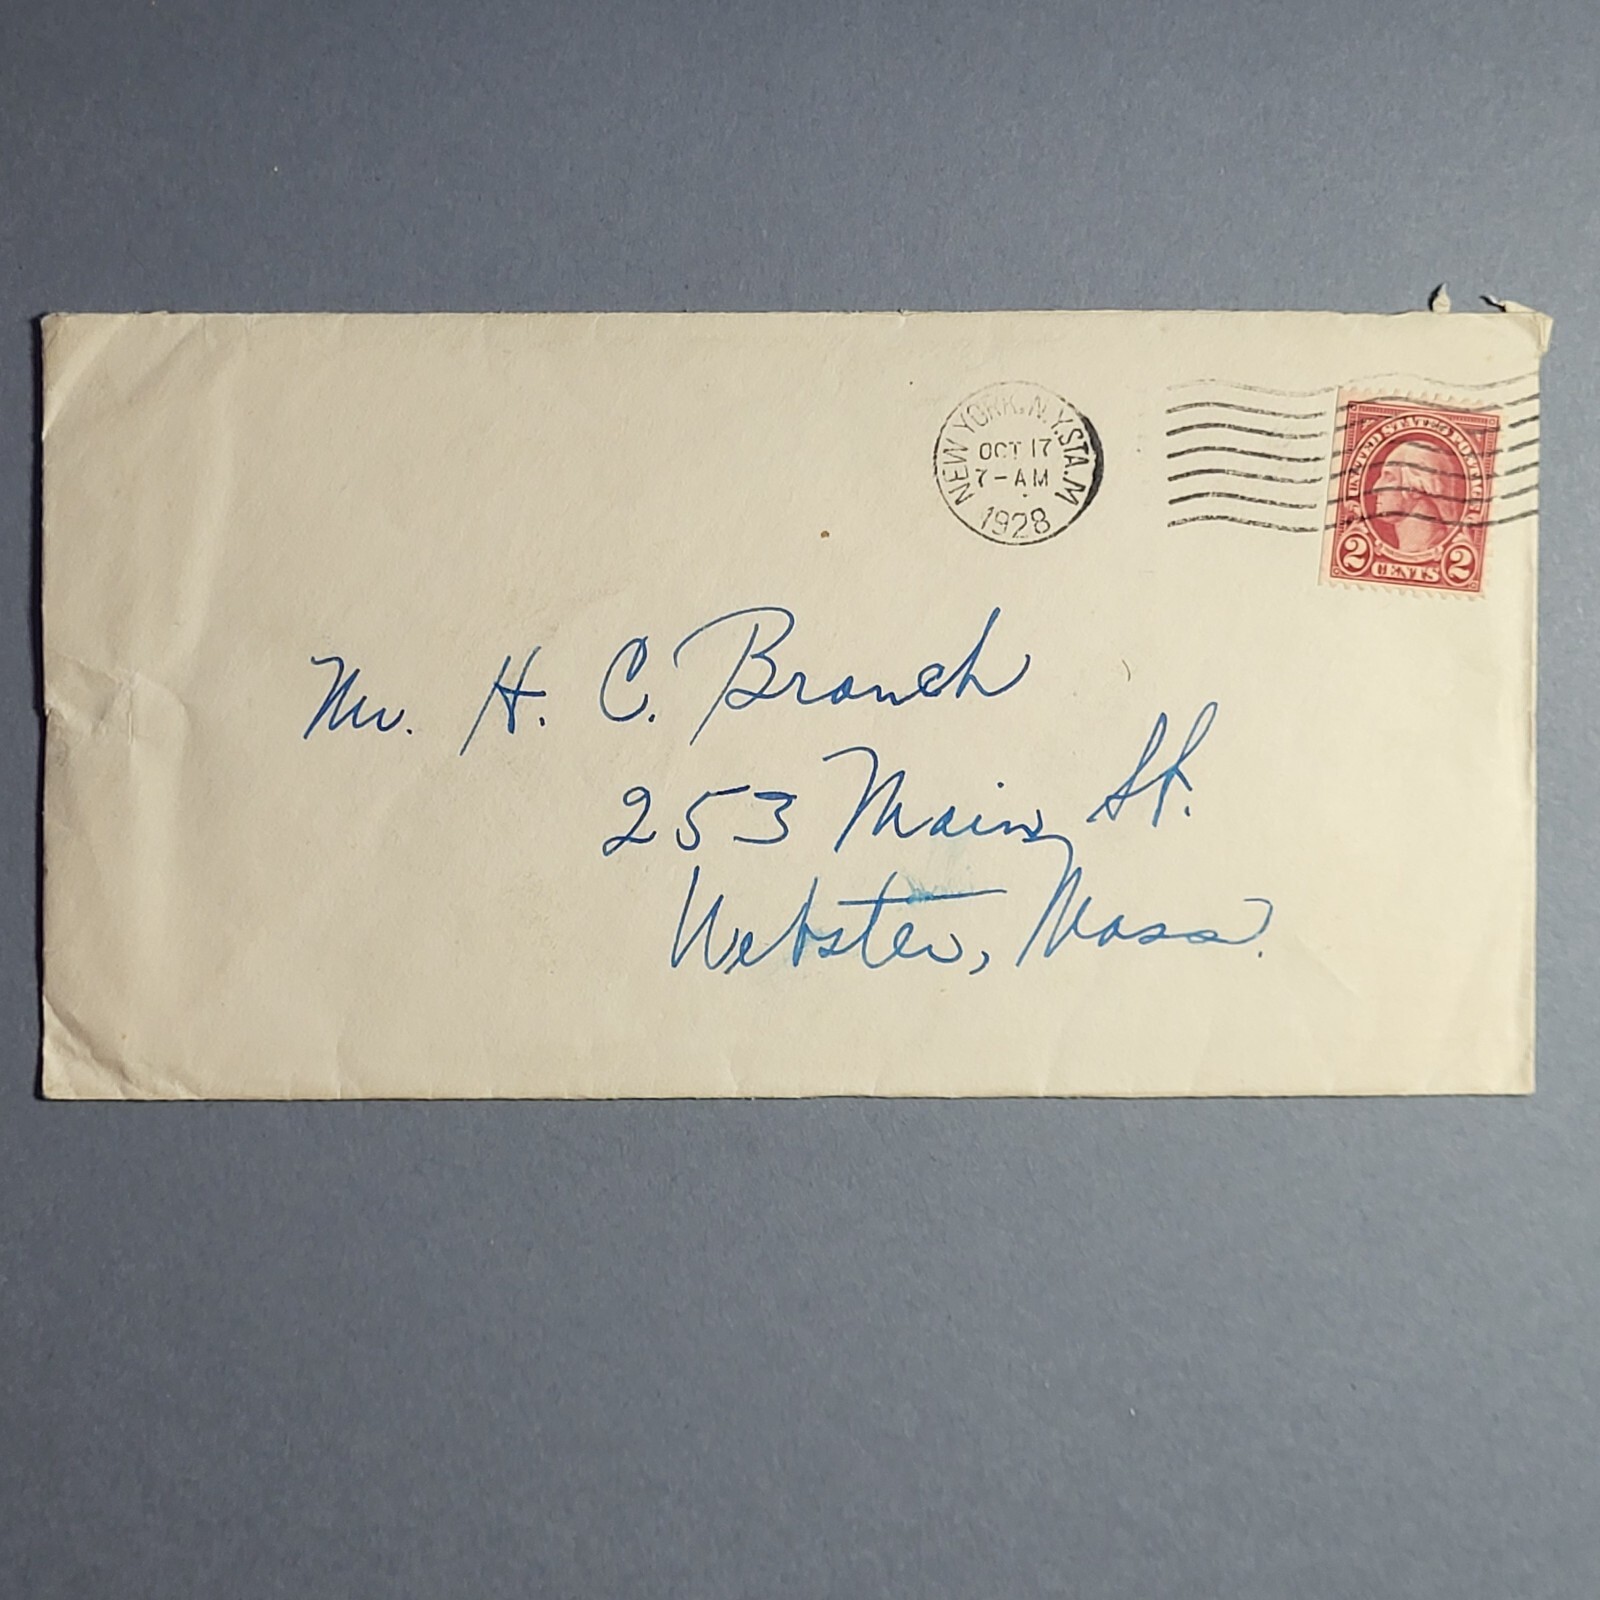 NEW YORK, N.Y. STA. M
OCT 17
7-AM
1928
UNITED STATES POSTAGE
2 CENTS 2
Mr. H. C. Branch
253 Main St.
Webster, Mass.